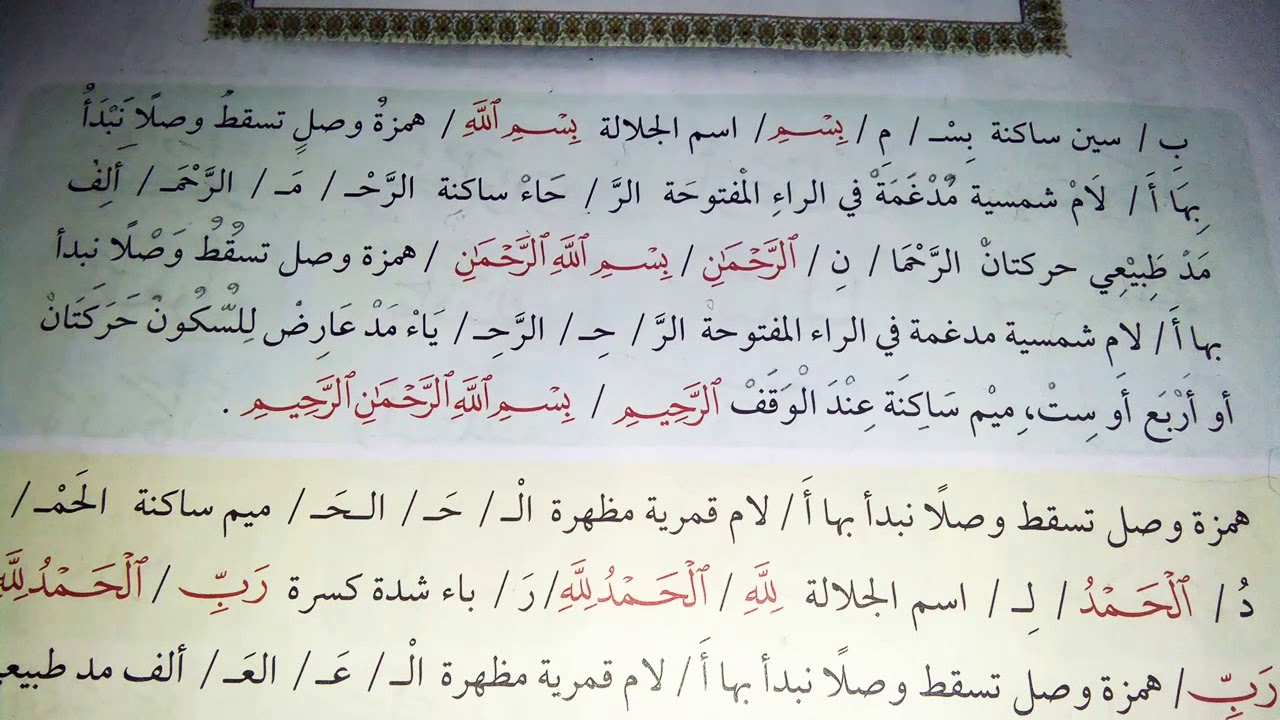 بِ / سين ساكنة بِسْـ / مِ / بِسْمِ / اسم الجلالة بِسْمِ ٱللَّهِ / همزةُ وصلٍ تسقطُ وصلًا نَبْدَأُ
بِهَا أَ / لَامْ شمسية مُدْغَمَةْ في الراءِ الْمفتوحَة الرَّ / حَاءْ ساكنة الرَّحْـ / مَـ / الرَّحْمَـ / ألِفْ
مَدْ طَبِيْعِي حركتانْ الرَّحْمَا / نِ / ٱلرَّحْمَٰنِ / بِسْمِ ٱللَّهِ ٱلرَّحْمَٰنِ / همزة وصل تسقُطُ وَصْلًا نبدأ
بها أَ / لام شمسية مدغمة في الراء المفتوحة الرَّ / حِـ / الرَّحِـ / يَاءْ مَدْ عَارِضْ لِلسُّكُونْ حَرَكَتَانْ
أو أَرْبَع أَو سِتْ، مِيْم سَاكِنَة عِنْدَ الْوَقَفْ ٱلرَّحِيمِ / بِسْمِ ٱللَّهِ ٱلرَّحْمَٰنِ ٱلرَّحِيمِ .
همزة وصل تسقط وصلًا نبدأ بها أَ / لام قمرية مظهرة الْـ / حَـ / الـحَـ / ميم ساكنة الحَمْـ /
دُ / ٱلْحَمْدُ / لِـ / اسم الجلالة لِلَّهِ / ٱلْحَمْدُ لِلَّهِ / رَ / باء شدة كسرة رَبِّ / ٱلْحَمْدُ لِلَّهِ
رَبِّ / همزة وصل تسقط وصلًا نبدأ بها أَ / لام قمرية مظهرة الْـ / عَـ / العَـ / ألف مد طبيعي